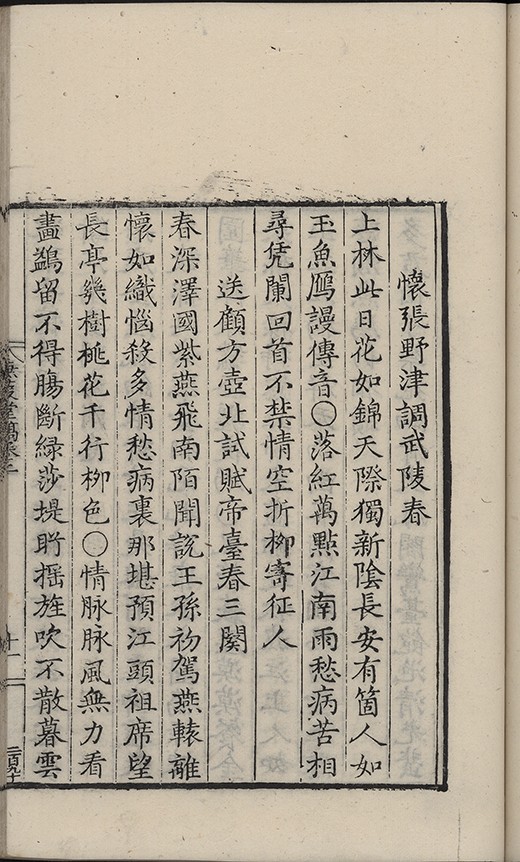 懷張野津調武陵春
上林此日花如錦天際獨新陰長安有箇人如
玉魚鴈謾傳音〇落紅萬點江南雨愁病苦相
尋凭闌回首不禁情空折柳寄征人
送顧方壺北試賦帝臺春三闋
春深澤國紫燕飛南陌聞說王孫初駕燕轅離
懷如織惱殺多情愁病裏那堪預江頭祖席望
長亭幾樹桃花千行柳色〇情脉脉風無力看
畫鷁留不得膓斷緑莎堤盻揺旌吹不散暮雲
堂稿卷二
十一